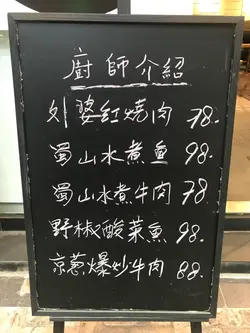 廚師介紹
外婆紅燒肉 78.
蜀山水煮鱼 98.
蜀山水煮牛肉 78
野椒酸菜魚 98.
京蔥爆炒牛肉 88.